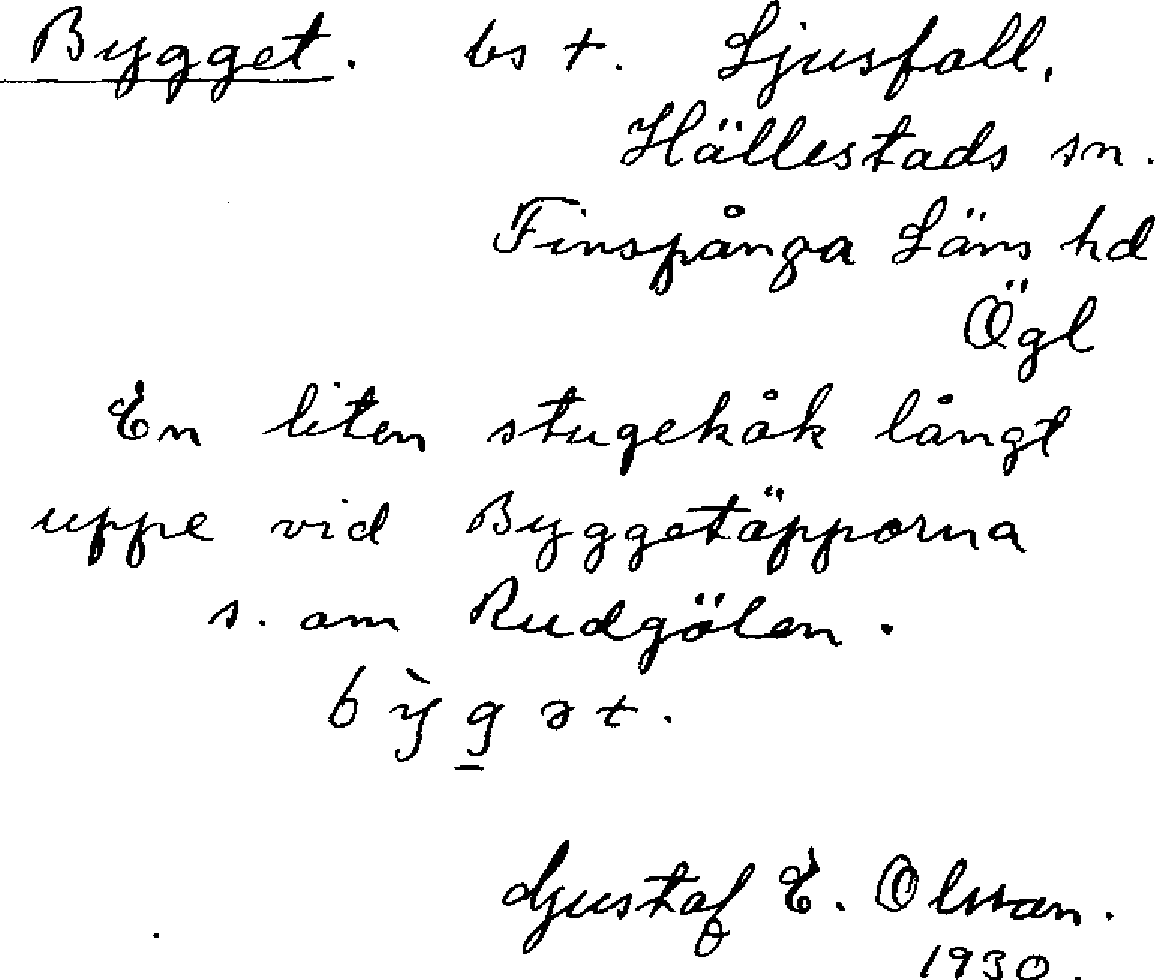 Bygget. bs t. Ljusfall,
Hällestads sn.
Finspånga Läns hd
Ögl
En liten stugekåk långt
uppe vid Byggetäpporna
s. om Rudgölen.
bỳg̲ət.
Gustaf E. Olsson.
1930.